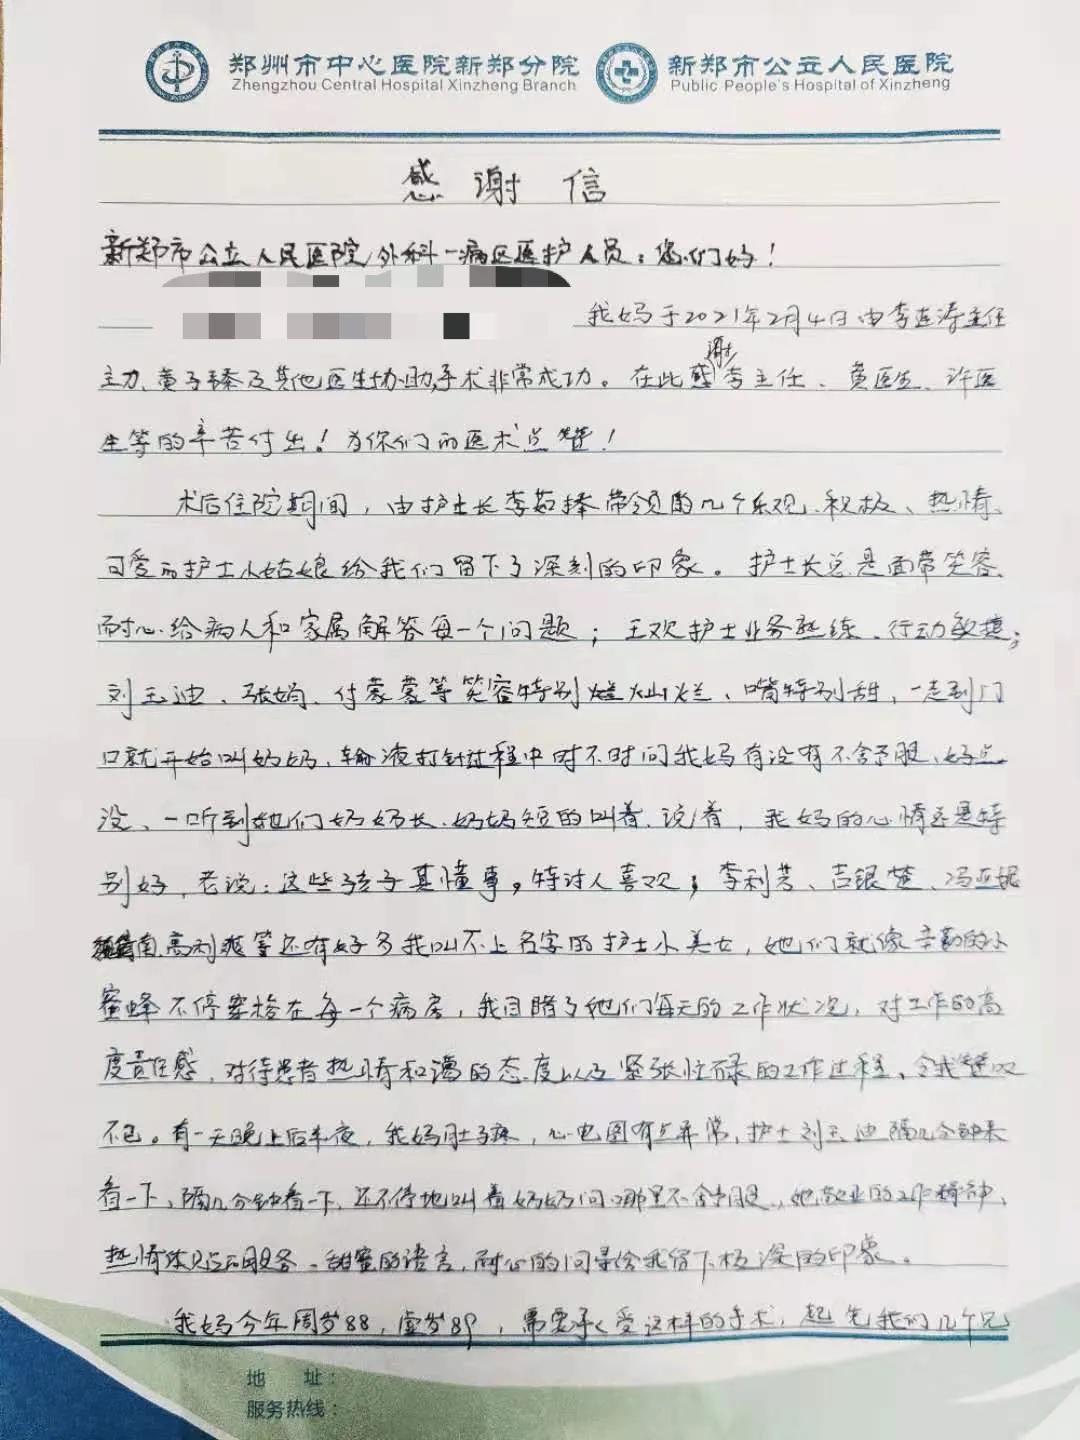 郑州市中心医院新郑分院 新郑市公立人民医院
Zhengzhou Central Hospital Xinzheng Branch Public People's Hospital of Xinzheng
感谢信
新郑市公立人民医院外科一病区医护人员：您们好！
我妈于2021年2月4日由李连涛主任
主刀、黄子臻及其他医生协助手术非常成功。在此感谢李主任、黄医生、许医
生等的辛苦付出！为你们的医术点赞！
术后住院期间，由护士长李茹择带领的几个乐观、积极、热情、
可爱的护士小姑娘给我们留下了深刻的印象。护士长总是面带笑容、
耐心给病人和家属解答每一个问题；王欢护士业务熟练、行动敏捷；
刘玉迪、张娟、付蒙蒙等笑容特别灿烂、嘴特别甜，一走到门
口就开始叫奶奶，输液打针过程中时不时问我妈有没有不舒服、好点
没、一听到她们奶奶长、奶奶短的叫着、说着，我妈的心情还是特
别好，老说：这些孩子真懂事，特讨人喜欢；李利芳、吉银楚、冯亚妮
南、高利爽等还有好多我叫不上名字的护士小美女，她们就像辛勤的小
蜜蜂不停穿梭在每一个病房，我目睹了她们每天的工作状况，对工作的高
度责任感，对待患者热情和蔼的态度以及紧张忙碌的工作过程，令我赞叹
不已。有一天晚上后半夜，我妈肚疼，心电图有点异常，护士刘玉迪隔几分钟来
看一下、隔几分钟看一下、还不停地叫着奶奶问哪里不舒服，她敬业的工作精神、
热情体贴的服务、甜蜜的语言，耐心的问寻给我留下极深的印象。
我妈今年周岁88，虚岁89，需要承受这样的手术，起先我们几个兄
地 址：
服务热线：